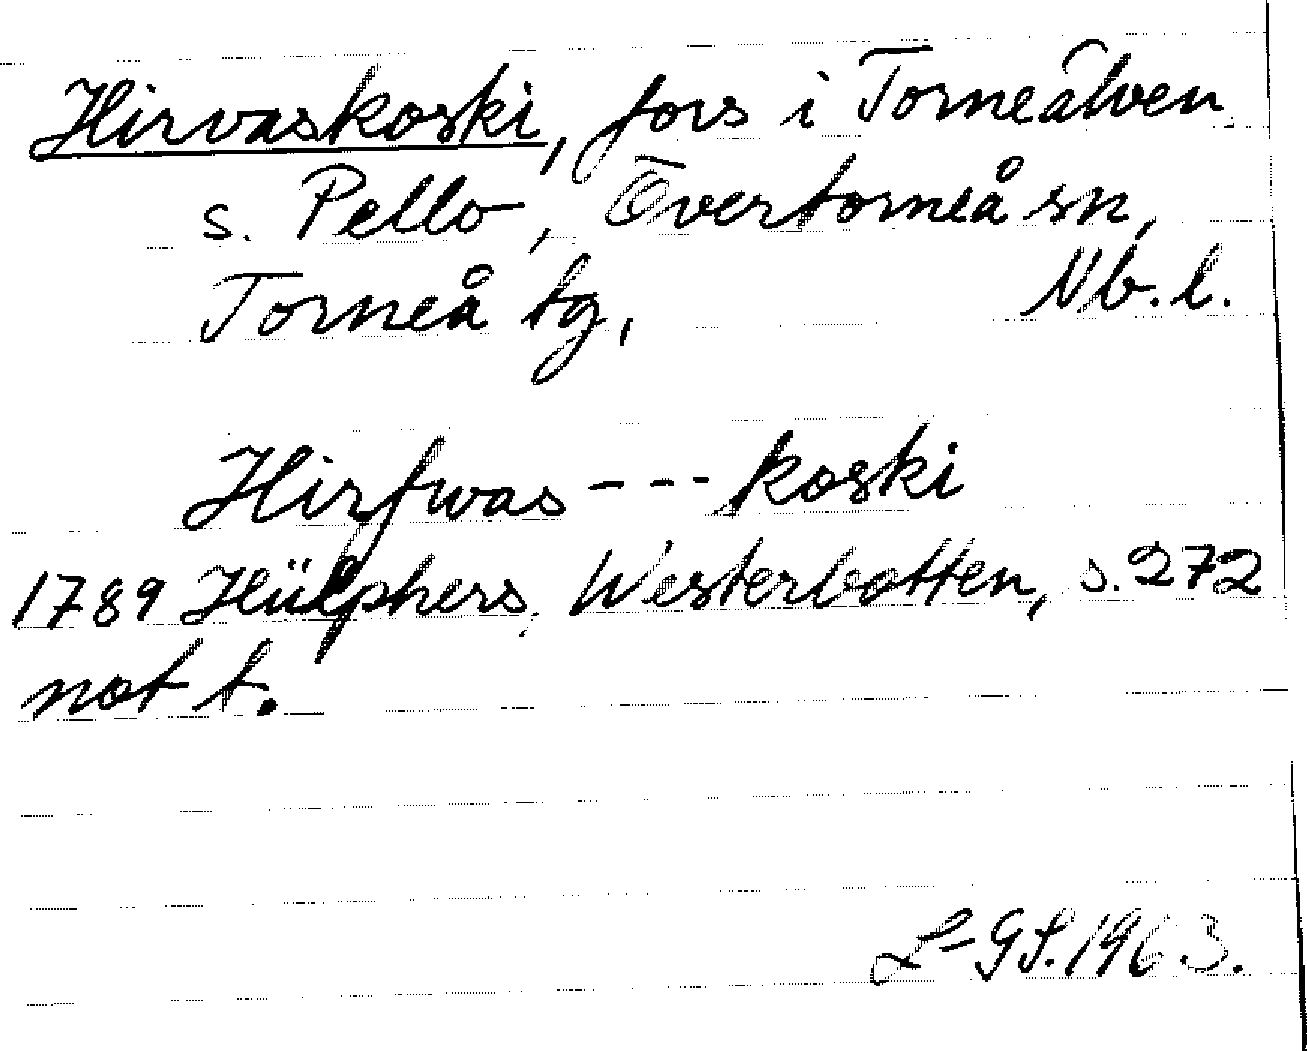 Hirvaskoski, fors i Torneälven
s. Pello, Övertorneå sn,
Torneå tg, Nb. l.
Hirfwas---koski
1789 Hülphers, Westerbotten, s. 272
not t.
L-GS. 1963.